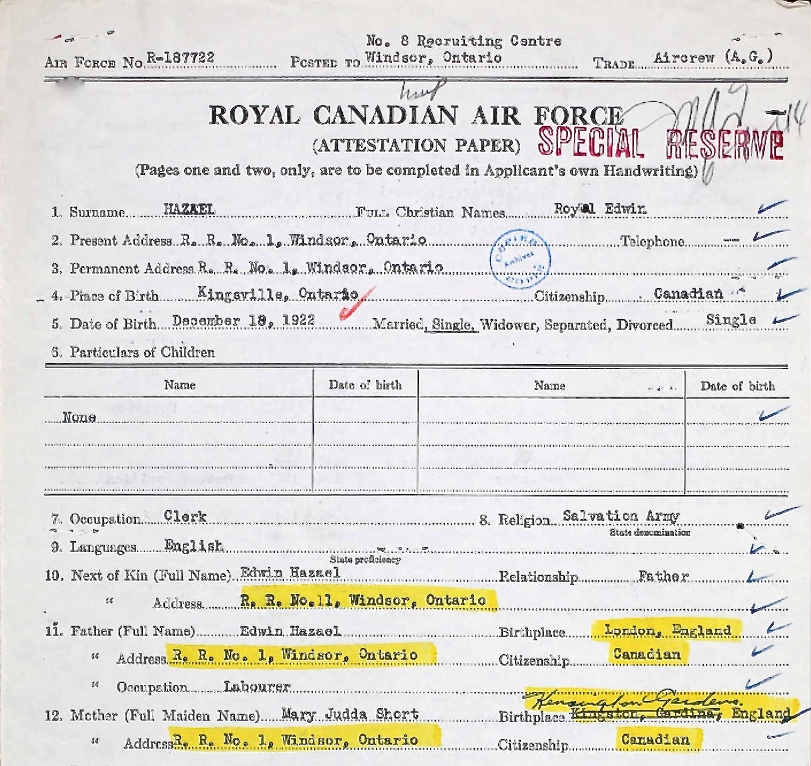 No. 8 Recruiting Centre
AIR FORCE No. R-187722 POSTED TO Windsor, Ontario TRADE Aircrew (A.G.)
ROYAL CANADIAN AIR FORCE
(ATTESTATION PAPER) SPECIAL RESERVE
(Pages one and two, only, are to be completed in Applicant's own Handwriting)
1. Surname HAZAEL FULL CHRISTIAN NAMES Royal Edwin
2. Present Address R. R. No. 1, Windsor, Ontario Telephone --
3. Permanent Address R. R. No. 1, Windsor, Ontario
COPIED
Archives
4. Place of Birth Kingsville, Ontario Citizenship Canadian
5. Date of Birth December 18, 1922 Married, Single, Widower, Separated, Divorced Single
6. Particulars of Children
Name Date of birth Name Date of birth
None
7. Occupation Clerk 8. Religion Salvation Army
State denomination
9. Languages English
State proficiency
10. Next of Kin (Full Name) Edwin Hazael Relationship Father
" Address R. R. No. 11, Windsor, Ontario
11. Father (Full Name) Edwin Hazael Birthplace London, England
" Address R. R. No. 1, Windsor, Ontario Citizenship Canadian
" Occupation Labourer
Kensington Gardens.
12. Mother (Full Maiden Name) Mary Judda Short Birthplace Kingston, Gardina, England
" Address R. R. No. 1, Windsor, Ontario Citizenship Canadian